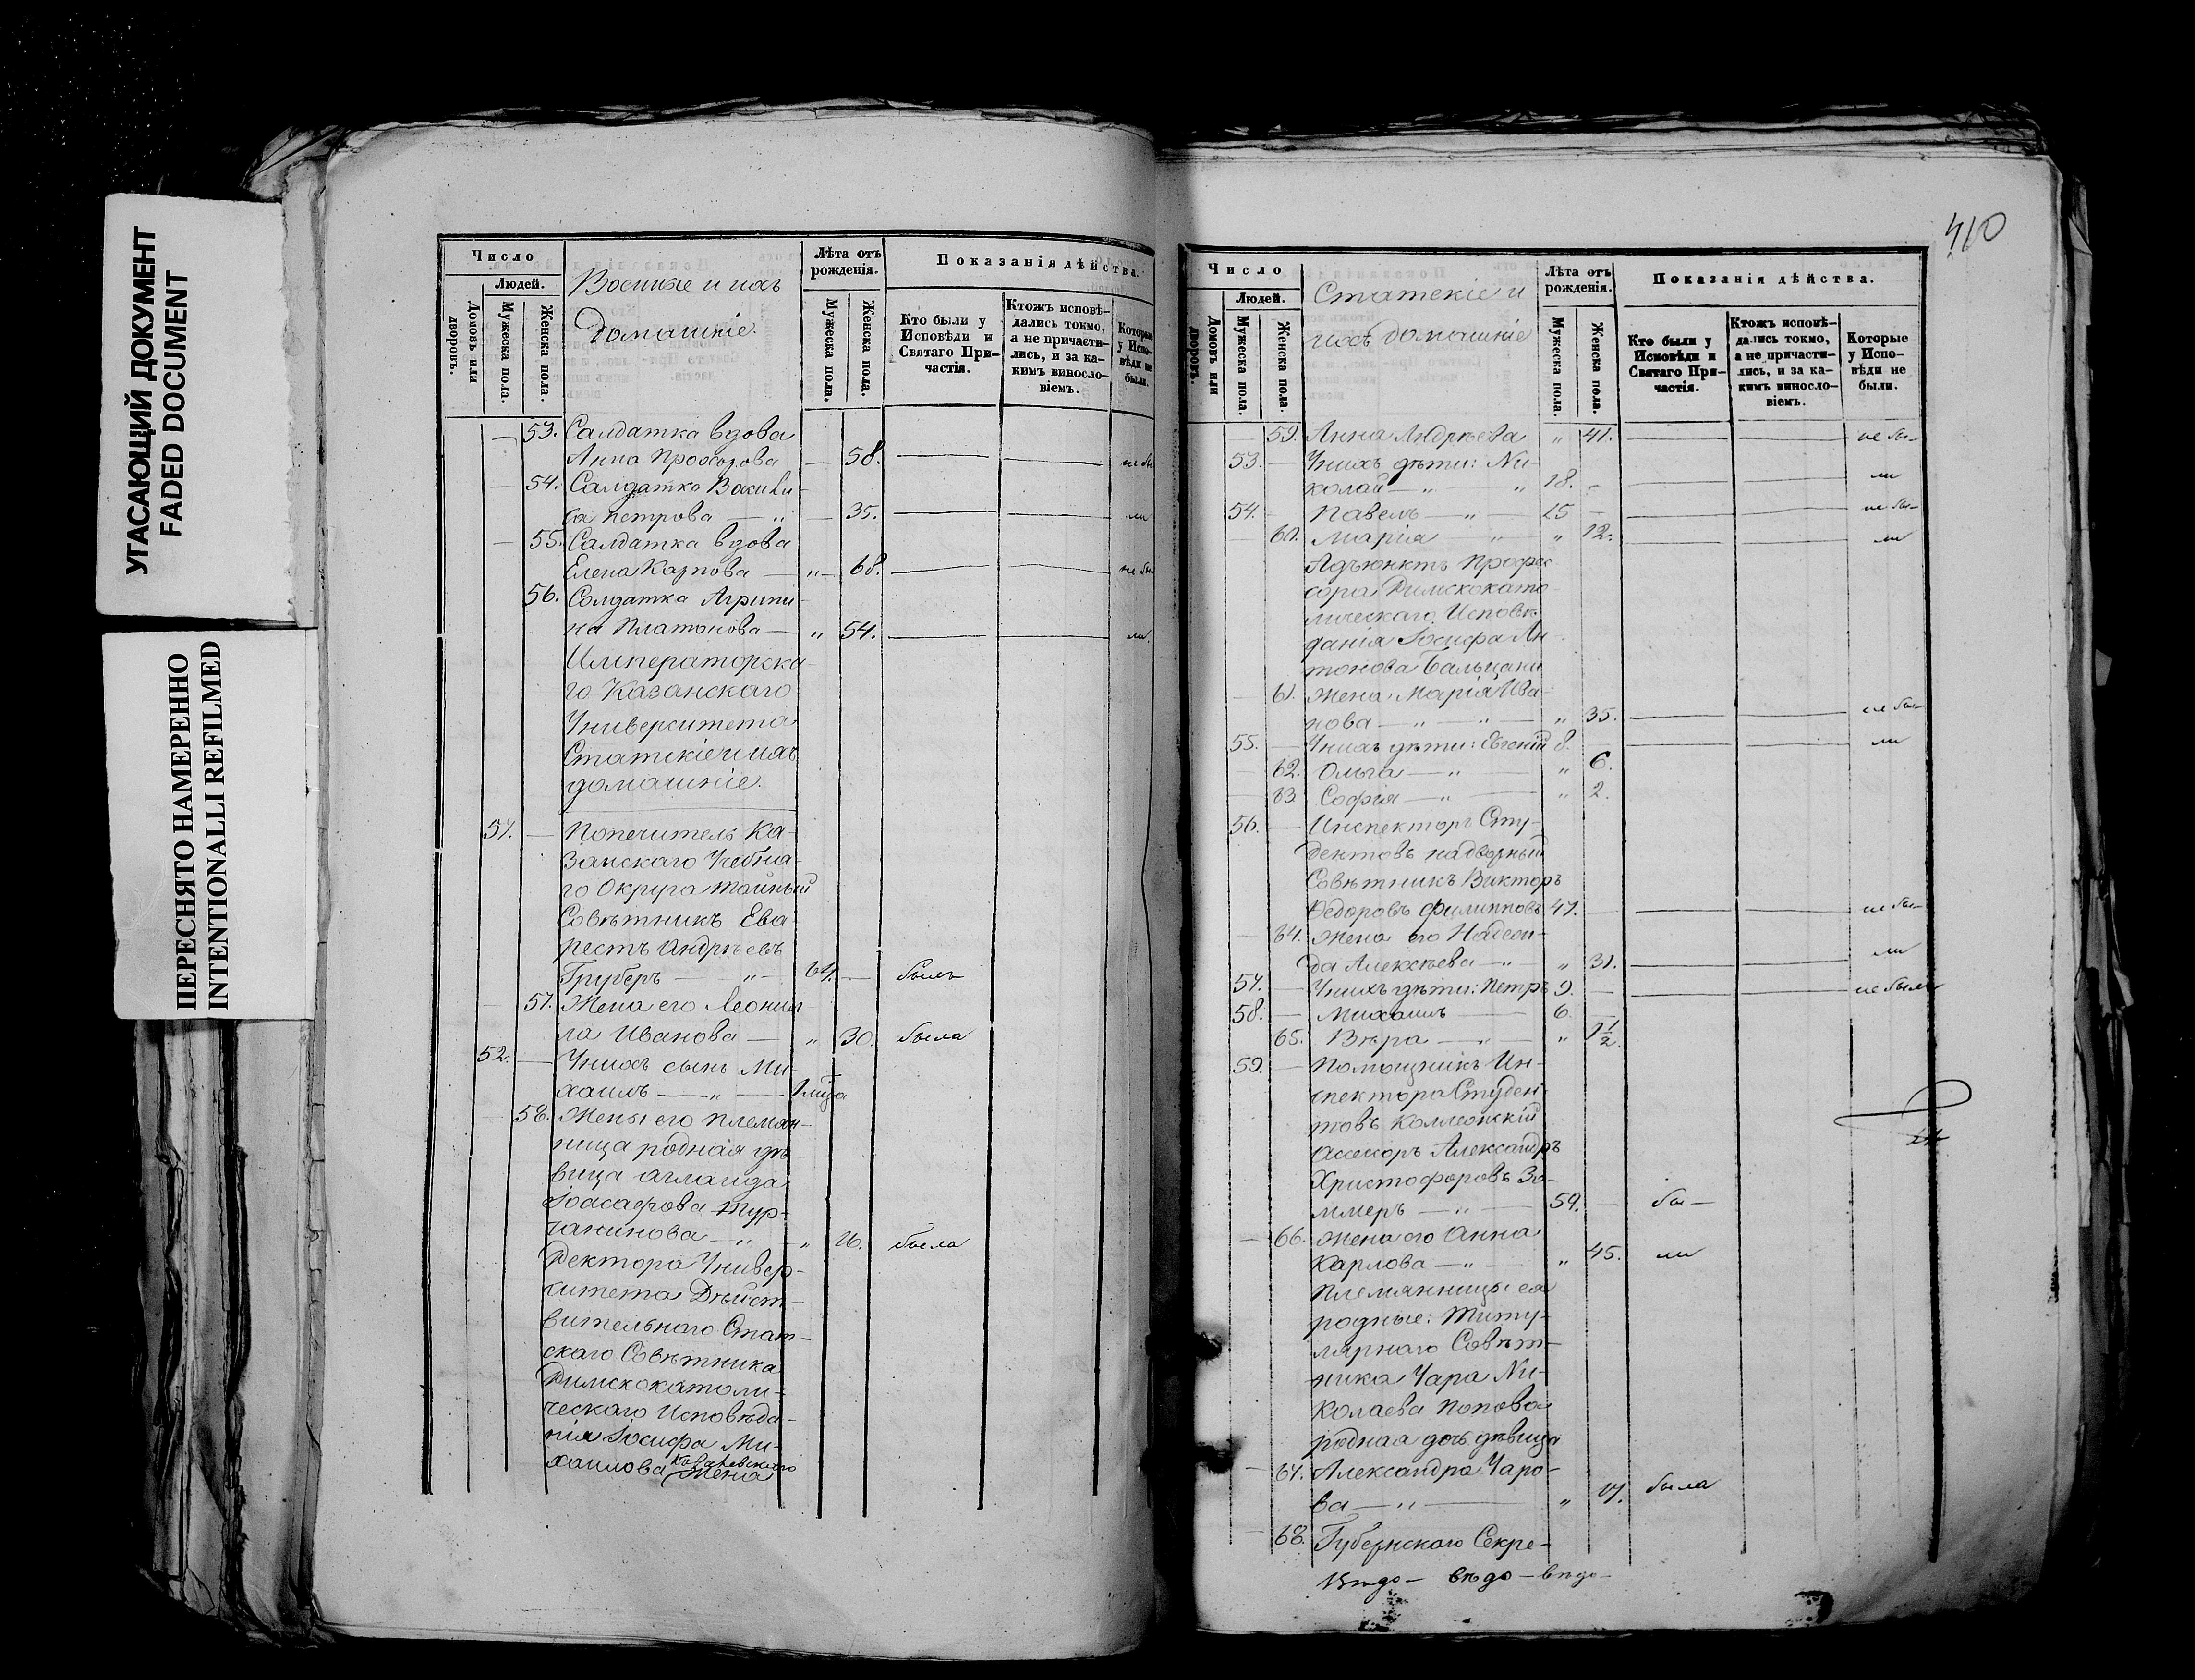 УГАСАЮЩИЙ ДОКУМЕНТ
FADED DOCUMENT
ПЕРЕСНЯТО НАМЕРЕННО
INTENTIONALLI REFILMED
Число
Людей.
Домовъ или дворовъ.
Мужеска пола.
Женска пола.
Военные и ихъ
Домашніе.
Лѣта отъ рожденія.
Мужеска пола.
Женска пола.
Показанія дѣйства.
Кто были у Исповѣди и Святаго При-частія.
Ктожъ исповѣ-дались токмо, а не причасти-лись, и за ка-кимъ винос­ло-віемъ.
Которые у Испо-вѣди не были.
53. Салдатка вдова
Анна Прохорова — 58. не бы
54. Салдатка Васили-
са Петрова — „ — 35. ли
55. Салдатка вдова
Елена Карпова — „ — 68. не бы
56. Солдатка Агрипи-
на Платонова — „ 54. ли.
Императорска-
го Казанскаго
Университета
Статскіе и ихъ
домашніе.
51. — Попечитель Ка-
занскаго Учебна-
го Округа тайный
Совѣтникъ Ева-
рестъ Андрѣевъ
Груберъ — „ — 64. — былъ
57. Жена его Леонил-
ла Иванова — „ 30. была
52. — У нихъ сынъ Ми-
хаилъ — „ — 1 мѣца
58. Жены его племян-
ница родная дѣ-
вица Аглаида
Іоасафова Тур-
чанинова — „ — „ 26. была
Ректора Универ-
ситета Дѣйст-
вительнаго Стат-
скаго Совѣтника
Римскокатоли-
ческаго Исповѣда-
нія Іосифа Ми-
хаилова Ковалевскаго Жена
410
Число
Людей.
Домовъ или дворовъ.
Мужеска пола.
Женска пола.
Статскіе и
ихъ домашніе
Лѣта отъ рожденія.
Мужеска пола.
Женска пола.
Показанія дѣйства.
Кто были у Исповѣди и Святаго При-частія.
Ктожъ исповѣ-дались токмо, а не причасти-лись, и за ка-кимъ винос­ло-віемъ.
Которые у Испо-вѣди не были.
59. Анна Андрѣева „ 41. не бы-
53. — У нихъ дѣти: Ни-
колай — „ „ 18. ли
54. Павелъ — „ — 15 — не бы-
60. Марія „ „ 12. ли
Адъюнктъ Профес
сора Римскокато-
лическаго Исповѣ-
данія Іосифа Ан-
тонова Бальцани
61. Жена Марія Ива-
нова — „ — „ — „ 35. не бы-
55. — У нихъ дѣти: Евгеній 8. ли
62. Ольга — „ — „ 6.
63 Софія — „ — „ 2.
56. — Инспекторъ Сту-
дентовъ надворный
Совѣтникъ Викторъ
Ѳедоровъ Филипповъ 47. — не бы-
64. Жена его Надеж-
да Алексѣева — „ — „ 31. ли
57. — У нихъ дѣти: Петръ 9. — не были
58. — Михаилъ — 6. —
65. Вѣра — „ — „ 1 1/2.
59. — Помощникъ Ин-
спектора Студен-
товъ Коллежскій
Асессоръ Александръ
Христофоровъ Зо-
ммеръ — „ — 59. — бы —
66. Жена его Анна
Карлова — „ — „ 45. ли
Племянницы ея
родные: Титу-
лярнаго Совѣт-
ника Чара Ни-
колаева Попова
родная дочь дѣвица
67. Александра Чаро-
ва — „ — „ 17. была
68. Губернскаго Секре-
Вѣдо — вѣдо — вѣдо —